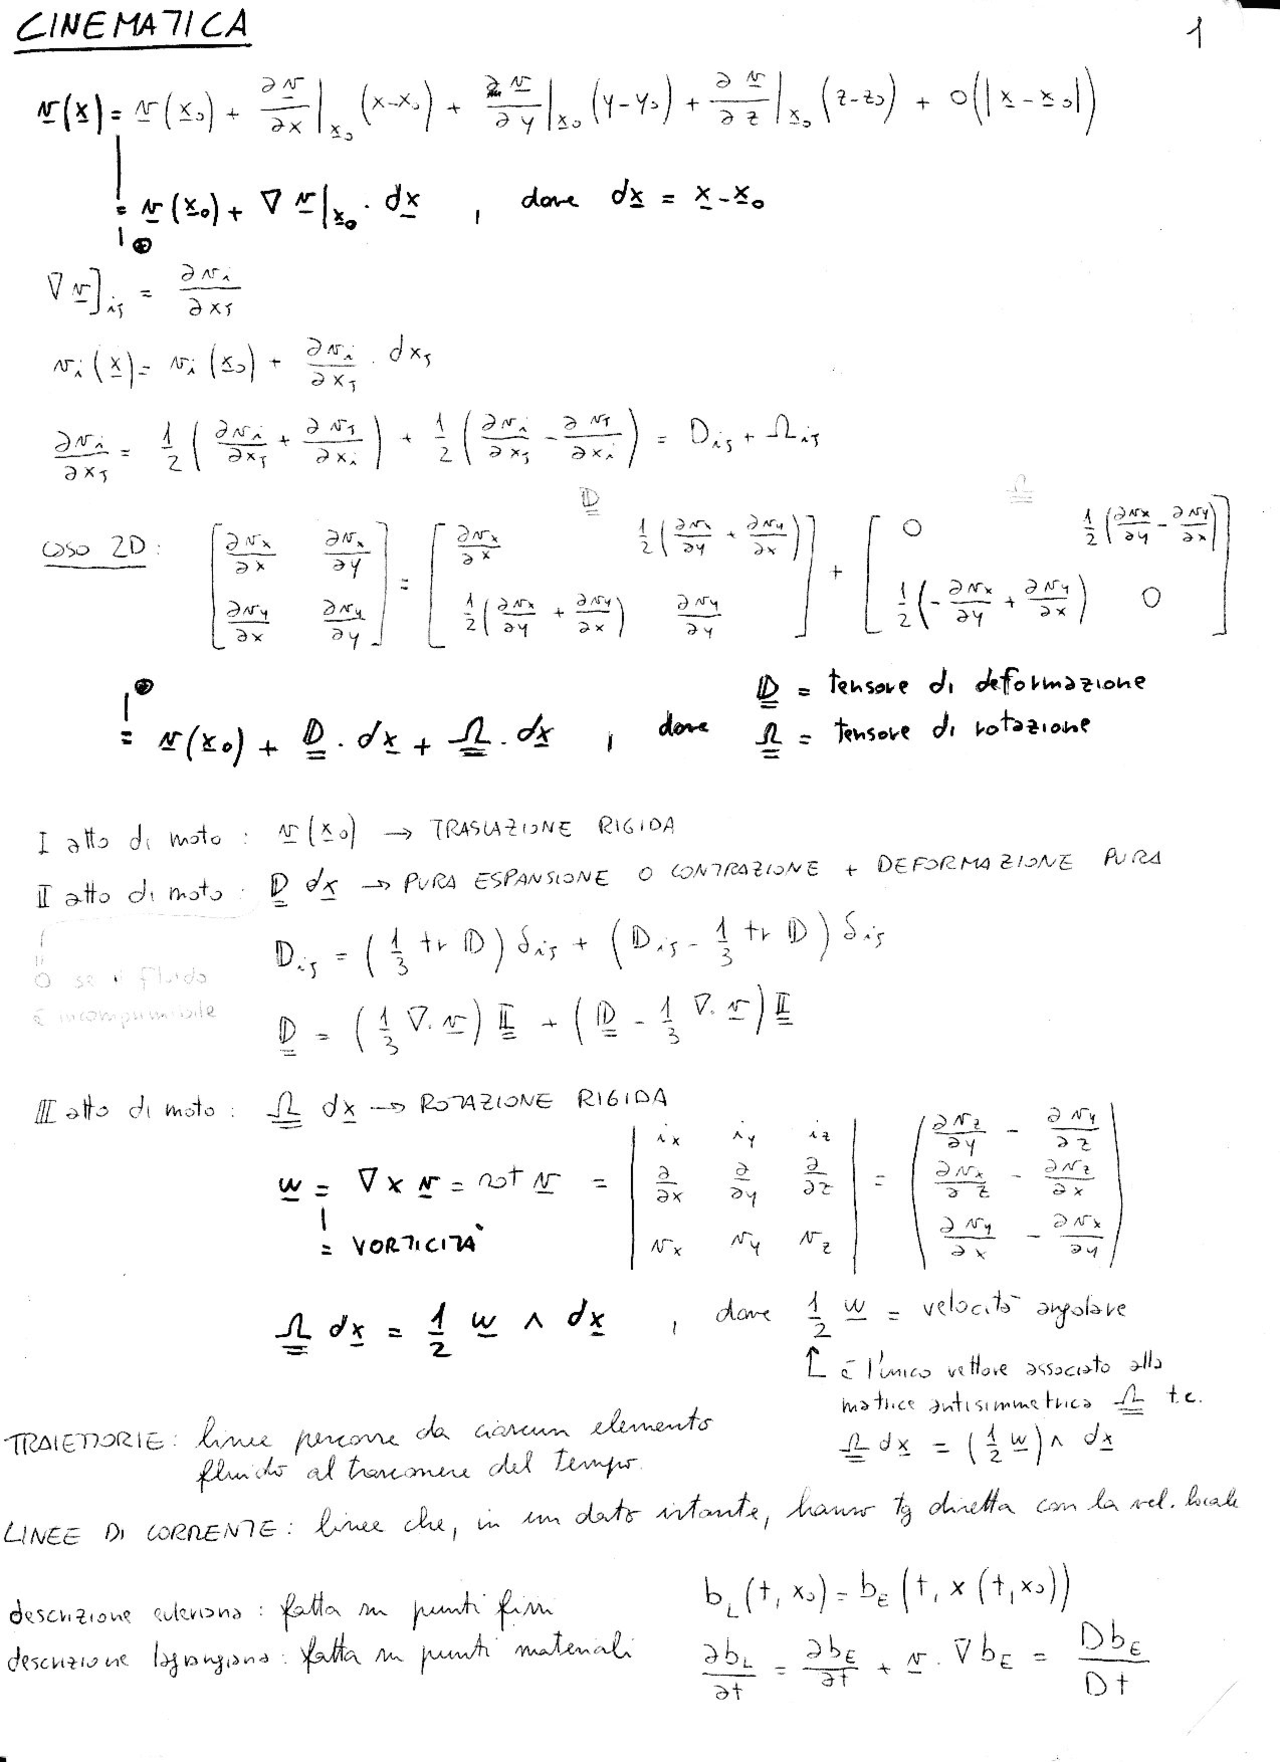 CINEMATICA 1
v(x) = v(x₀) + ∂v/∂x|x₀ (x-x₀) + ∂v/∂y|x₀ (y-y₀) + ∂v/∂z|x₀ (z-z₀) + O(|x-x₀|)
= v(x₀) + ∇v|x₀ · dx , dove dx = x-x₀
∇v]ij = ∂vi/∂xj
vi(x) = vi(x₀) + ∂vi/∂xj · dxj
∂vi/∂xj = 1/2 (∂vi/∂xj + ∂vj/∂xi) + 1/2 (∂vi/∂xj - ∂vj/∂xi) = Dij + Ωij
D Ω
caso 2D: [∂vx/∂x ∂vx/∂y ; ∂vy/∂x ∂vy/∂y] = [∂vx/∂x 1/2(∂vx/∂y + ∂vy/∂x) ; 1/2(∂vx/∂y + ∂vy/∂x) ∂vy/∂y] + [0 1/2(∂vx/∂y - ∂vy/∂x) ; 1/2(-∂vx/∂y + ∂vy/∂x) 0]
= v(x₀) + D · dx + Ω · dx , dove D = tensore di deformazione
Ω = tensore di rotazione
I atto di moto : v(x₀) → TRASLAZIONE RIGIDA
II atto di moto : D dx → PURA ESPANSIONE O CONTRAZIONE + DEFORMAZIONE PURA
Dij = (1/3 tr D) δij + (Dij - 1/3 tr D) δij
0 se il fluido
è incomprimibile
D = (1/3 ∇·v) I + (D - 1/3 ∇·v) I
III atto di moto : Ω dx → ROTAZIONE RIGIDA
w = ∇ x v = rot v = | ix iy iz ; ∂/∂x ∂/∂y ∂/∂z ; vx vy vz | = (∂vz/∂y - ∂vy/∂z ; ∂vx/∂z - ∂vz/∂x ; ∂vy/∂x - ∂vx/∂y)
= VORTICITÀ
Ω dx = 1/2 w ∧ dx , dove 1/2 w = velocità angolare
è l'unico vettore associato alla
matrice antisimmetrica Ω t.c.
Ω dx = (1/2 w) ∧ dx
TRAIETTORIE : linee percorse da ciascun elemento
fluido al trascorrere del tempo.
LINEE DI CORRENTE : linee che, in un dato istante, hanno tg diretta con la vel. locale
descrizione euleriana : fatta su punti fissi
descrizione lagrangiana : fatta su punti materiali
bL(t, x₀) = bE(t, x(t, x₀))
∂bL/∂t = ∂bE/∂t + v · ∇bE = DbE/Dt